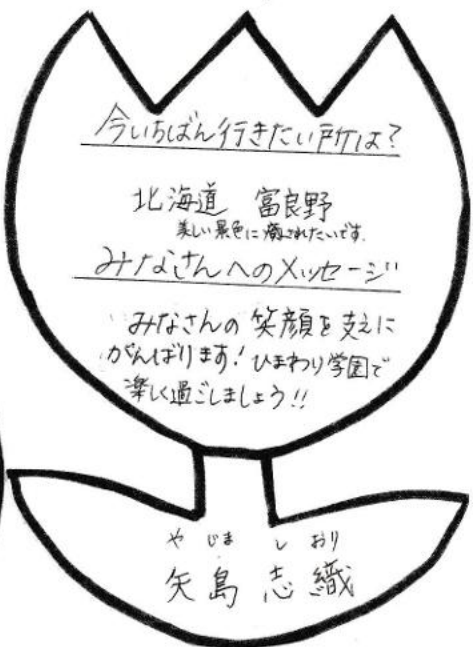 今いちばん行きたい所は?
北海道 富良野
美しい景色に癒されたいです。
みなさんへのメッセージ
みなさんの笑顔を支えに
がんばります!ひまわり学園で
楽しく過ごしましょう!!
や じま し おり
矢島 志織